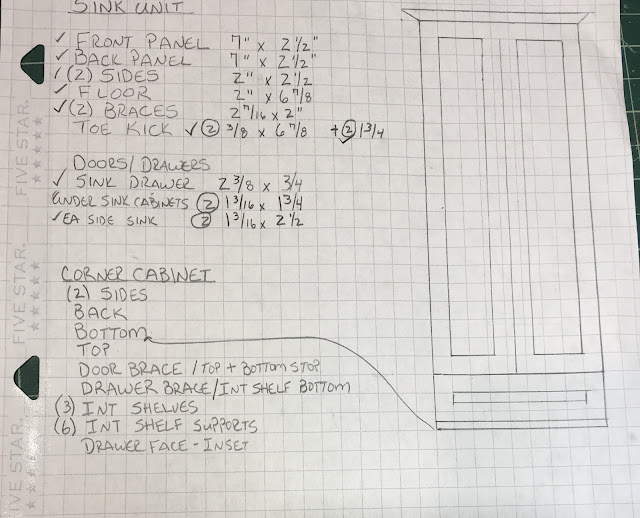 SINK UNIT
✓ FRONT PANEL 7" x 2 1/2"
✓ BACK PANEL 7" x 2 1/2"
✓ (2) SIDES 2" x 2 1/2
✓ FLOOR 2" x 6 7/8
✓ (2) BRACES 2 7/16 x 2"
TOE KICK ✓ (2) 3/8 x 6 7/8 + (2) 1 3/4
DOORS/DRAWERS
✓ SINK DRAWER 2 3/8 x 3/4
UNDER SINK CABINETS (2) 1 3/16 x 1 3/4
✓ EA SIDE SINK (2) 1 3/16 x 2 1/2
CORNER CABINET
(2) SIDES
BACK
BOTTOM
TOP
DOOR BRACE / TOP + BOTTOM STOP
DRAWER BRACE/INT SHELF BOTTOM
(3) INT SHELVES
(6) INT SHELF SUPPORTS
DRAWER FACE - INSET
FIVE STAR.
FIVE STAR.
FIVE STAR.